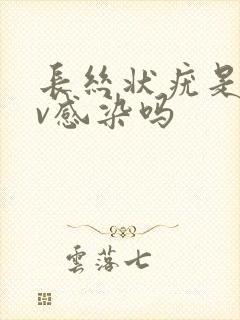 長丝状疣是
v感染吗
雲落七